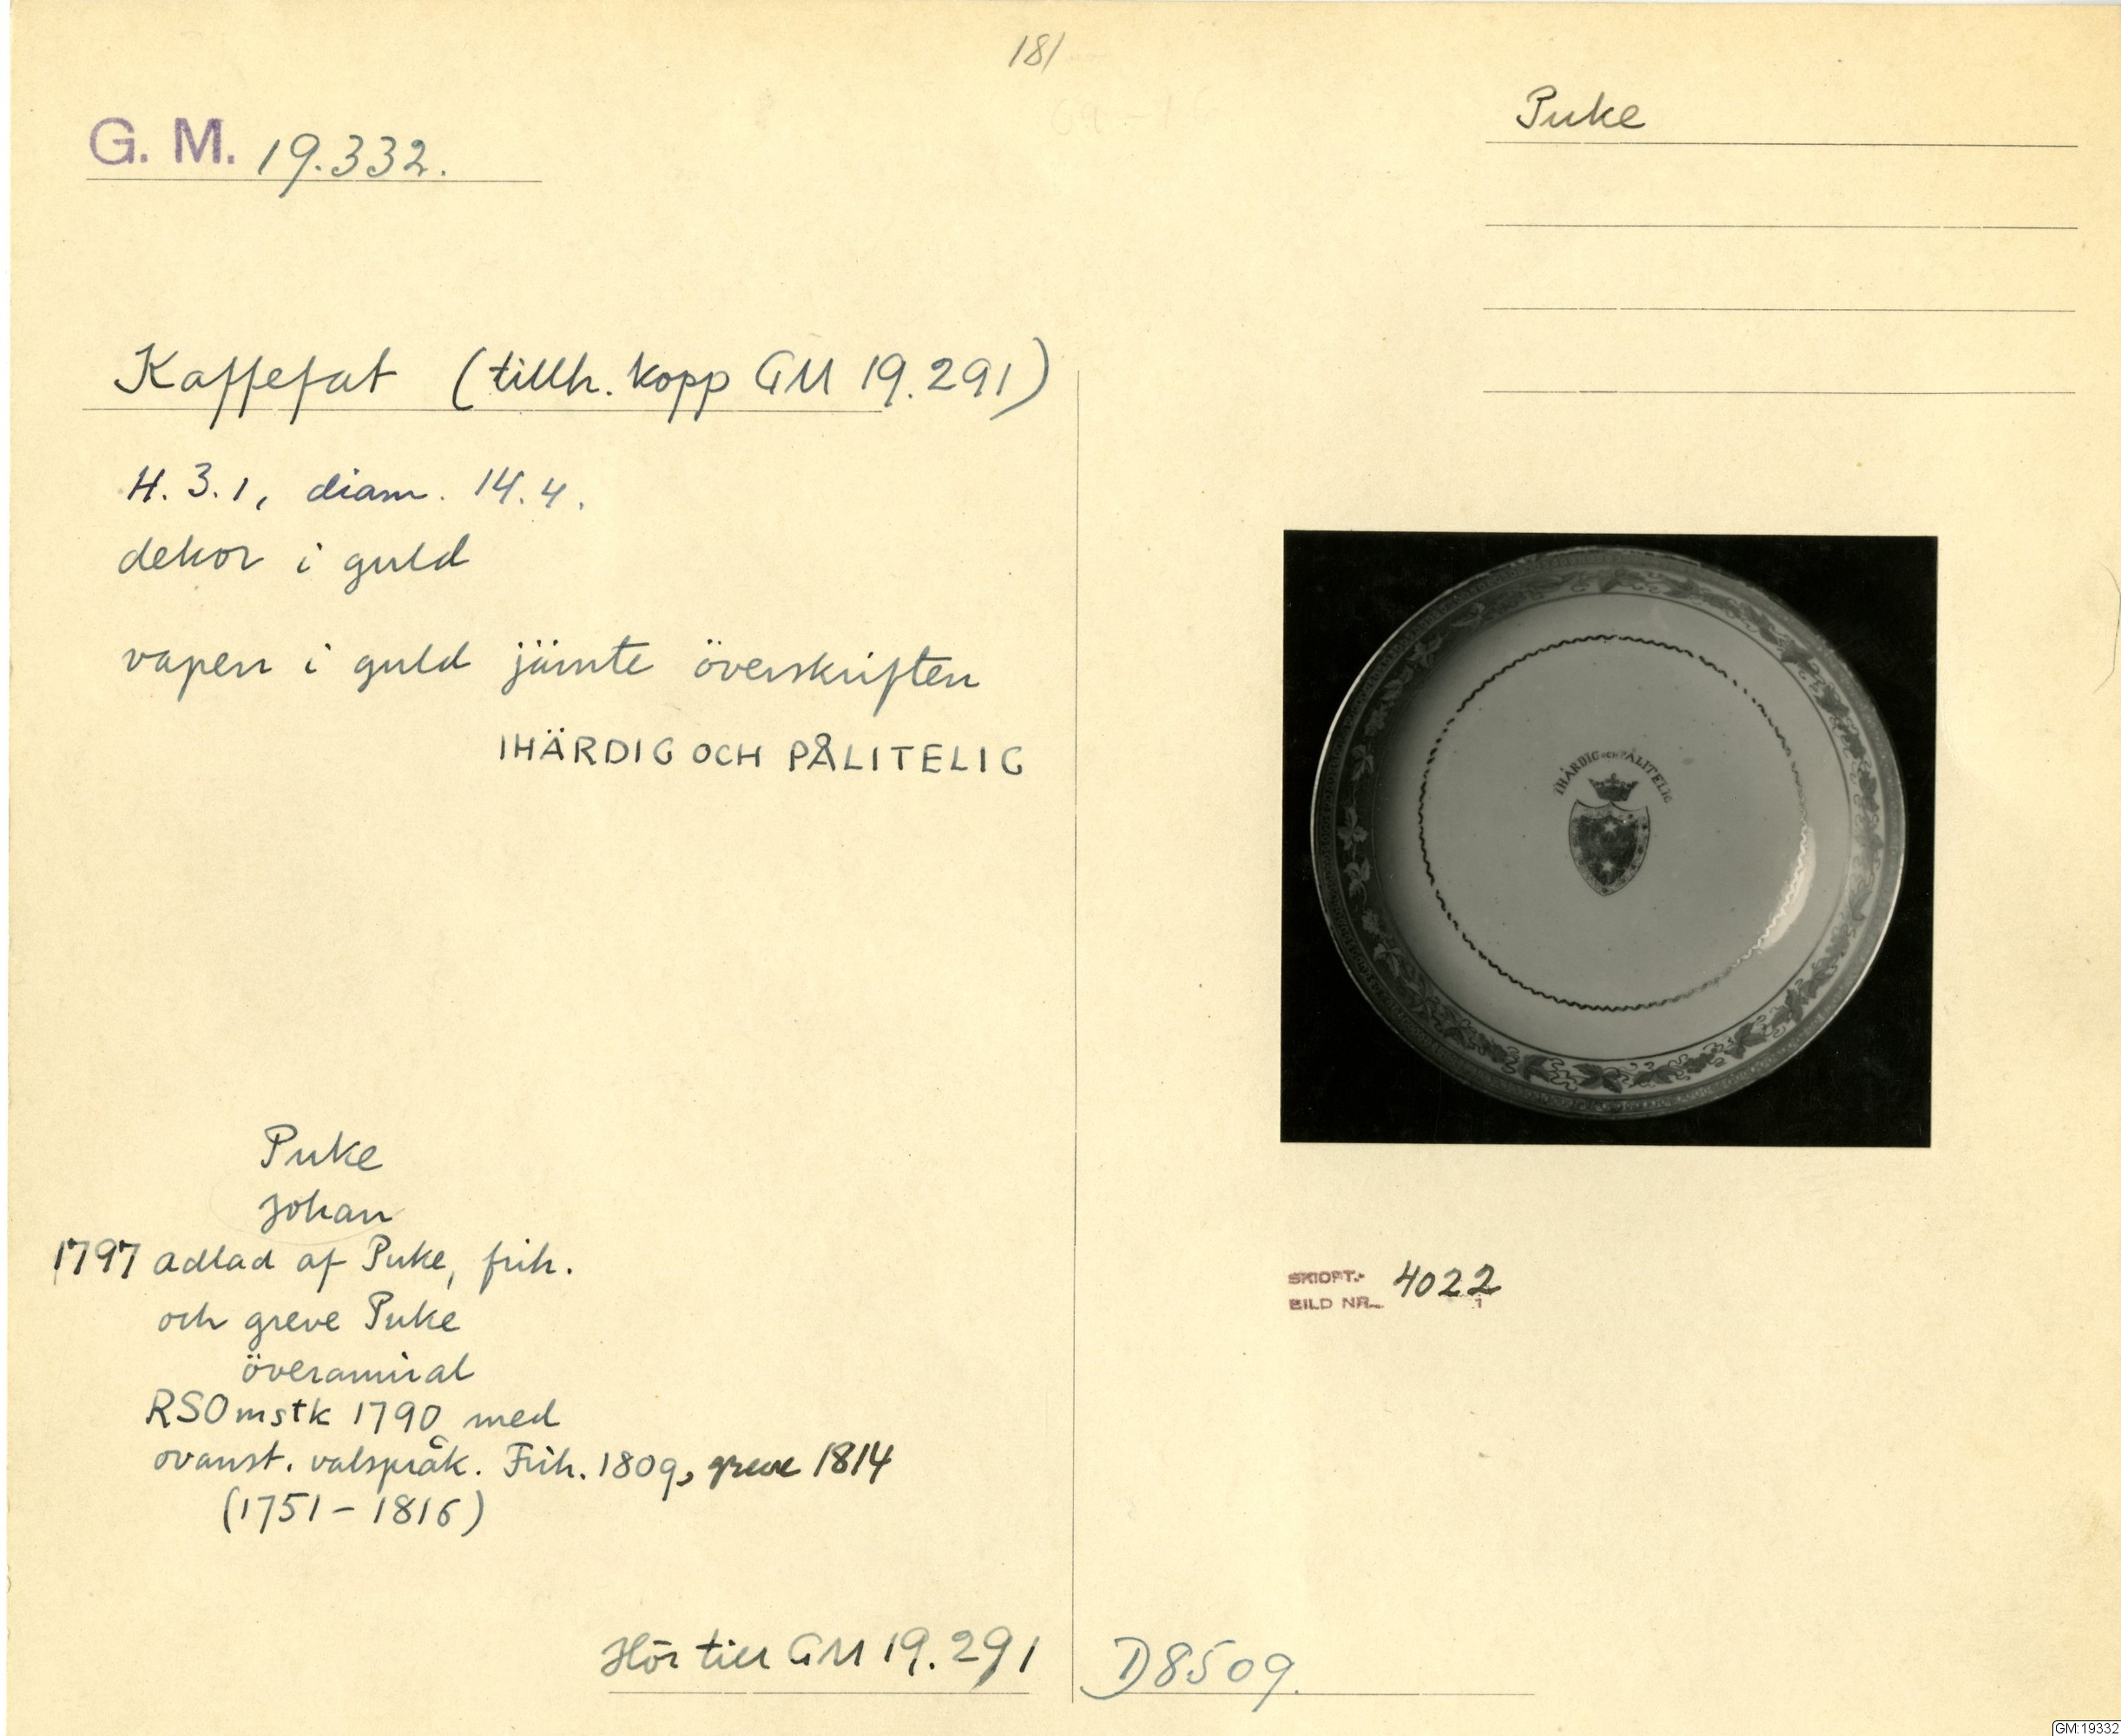 181
G. M. 19.332.
Puke
Kaffefat (tillh. kopp GM 19.291)
H. 3.1, diam. 14.4.
dekor i guld
vapen i guld jämte överskriften
IHÄRDIG OCH PÅLITELIG
IHÄRDIG OCH PÅLITELIG
Puke
Johan
1797 adlad af Puke, frih.
och greve Puke
överamiral
RSOmstk 1790 med
ovanst. valspråk. Frih. 1809, greve 1814
(1751 – 1816)
SKIOPT.-
BILD NR. 4022
Hör till GM 19.291
D8509.
GM:19332